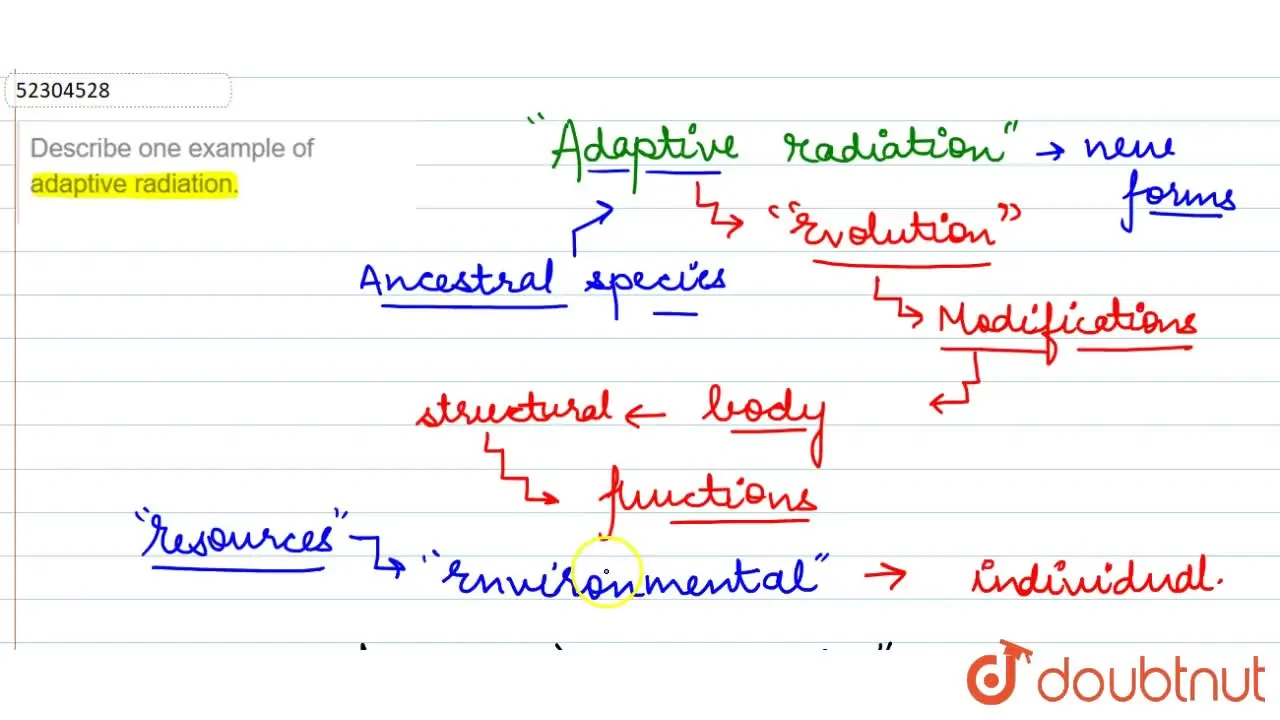 52304528
Describe one example of
adaptive radiation.
"Adaptive radiation" → new
forms
"Evolution"
Ancestral species
Modifications
structural ← body
functions
"resources"
"Environmental" → individual.
doubtnut